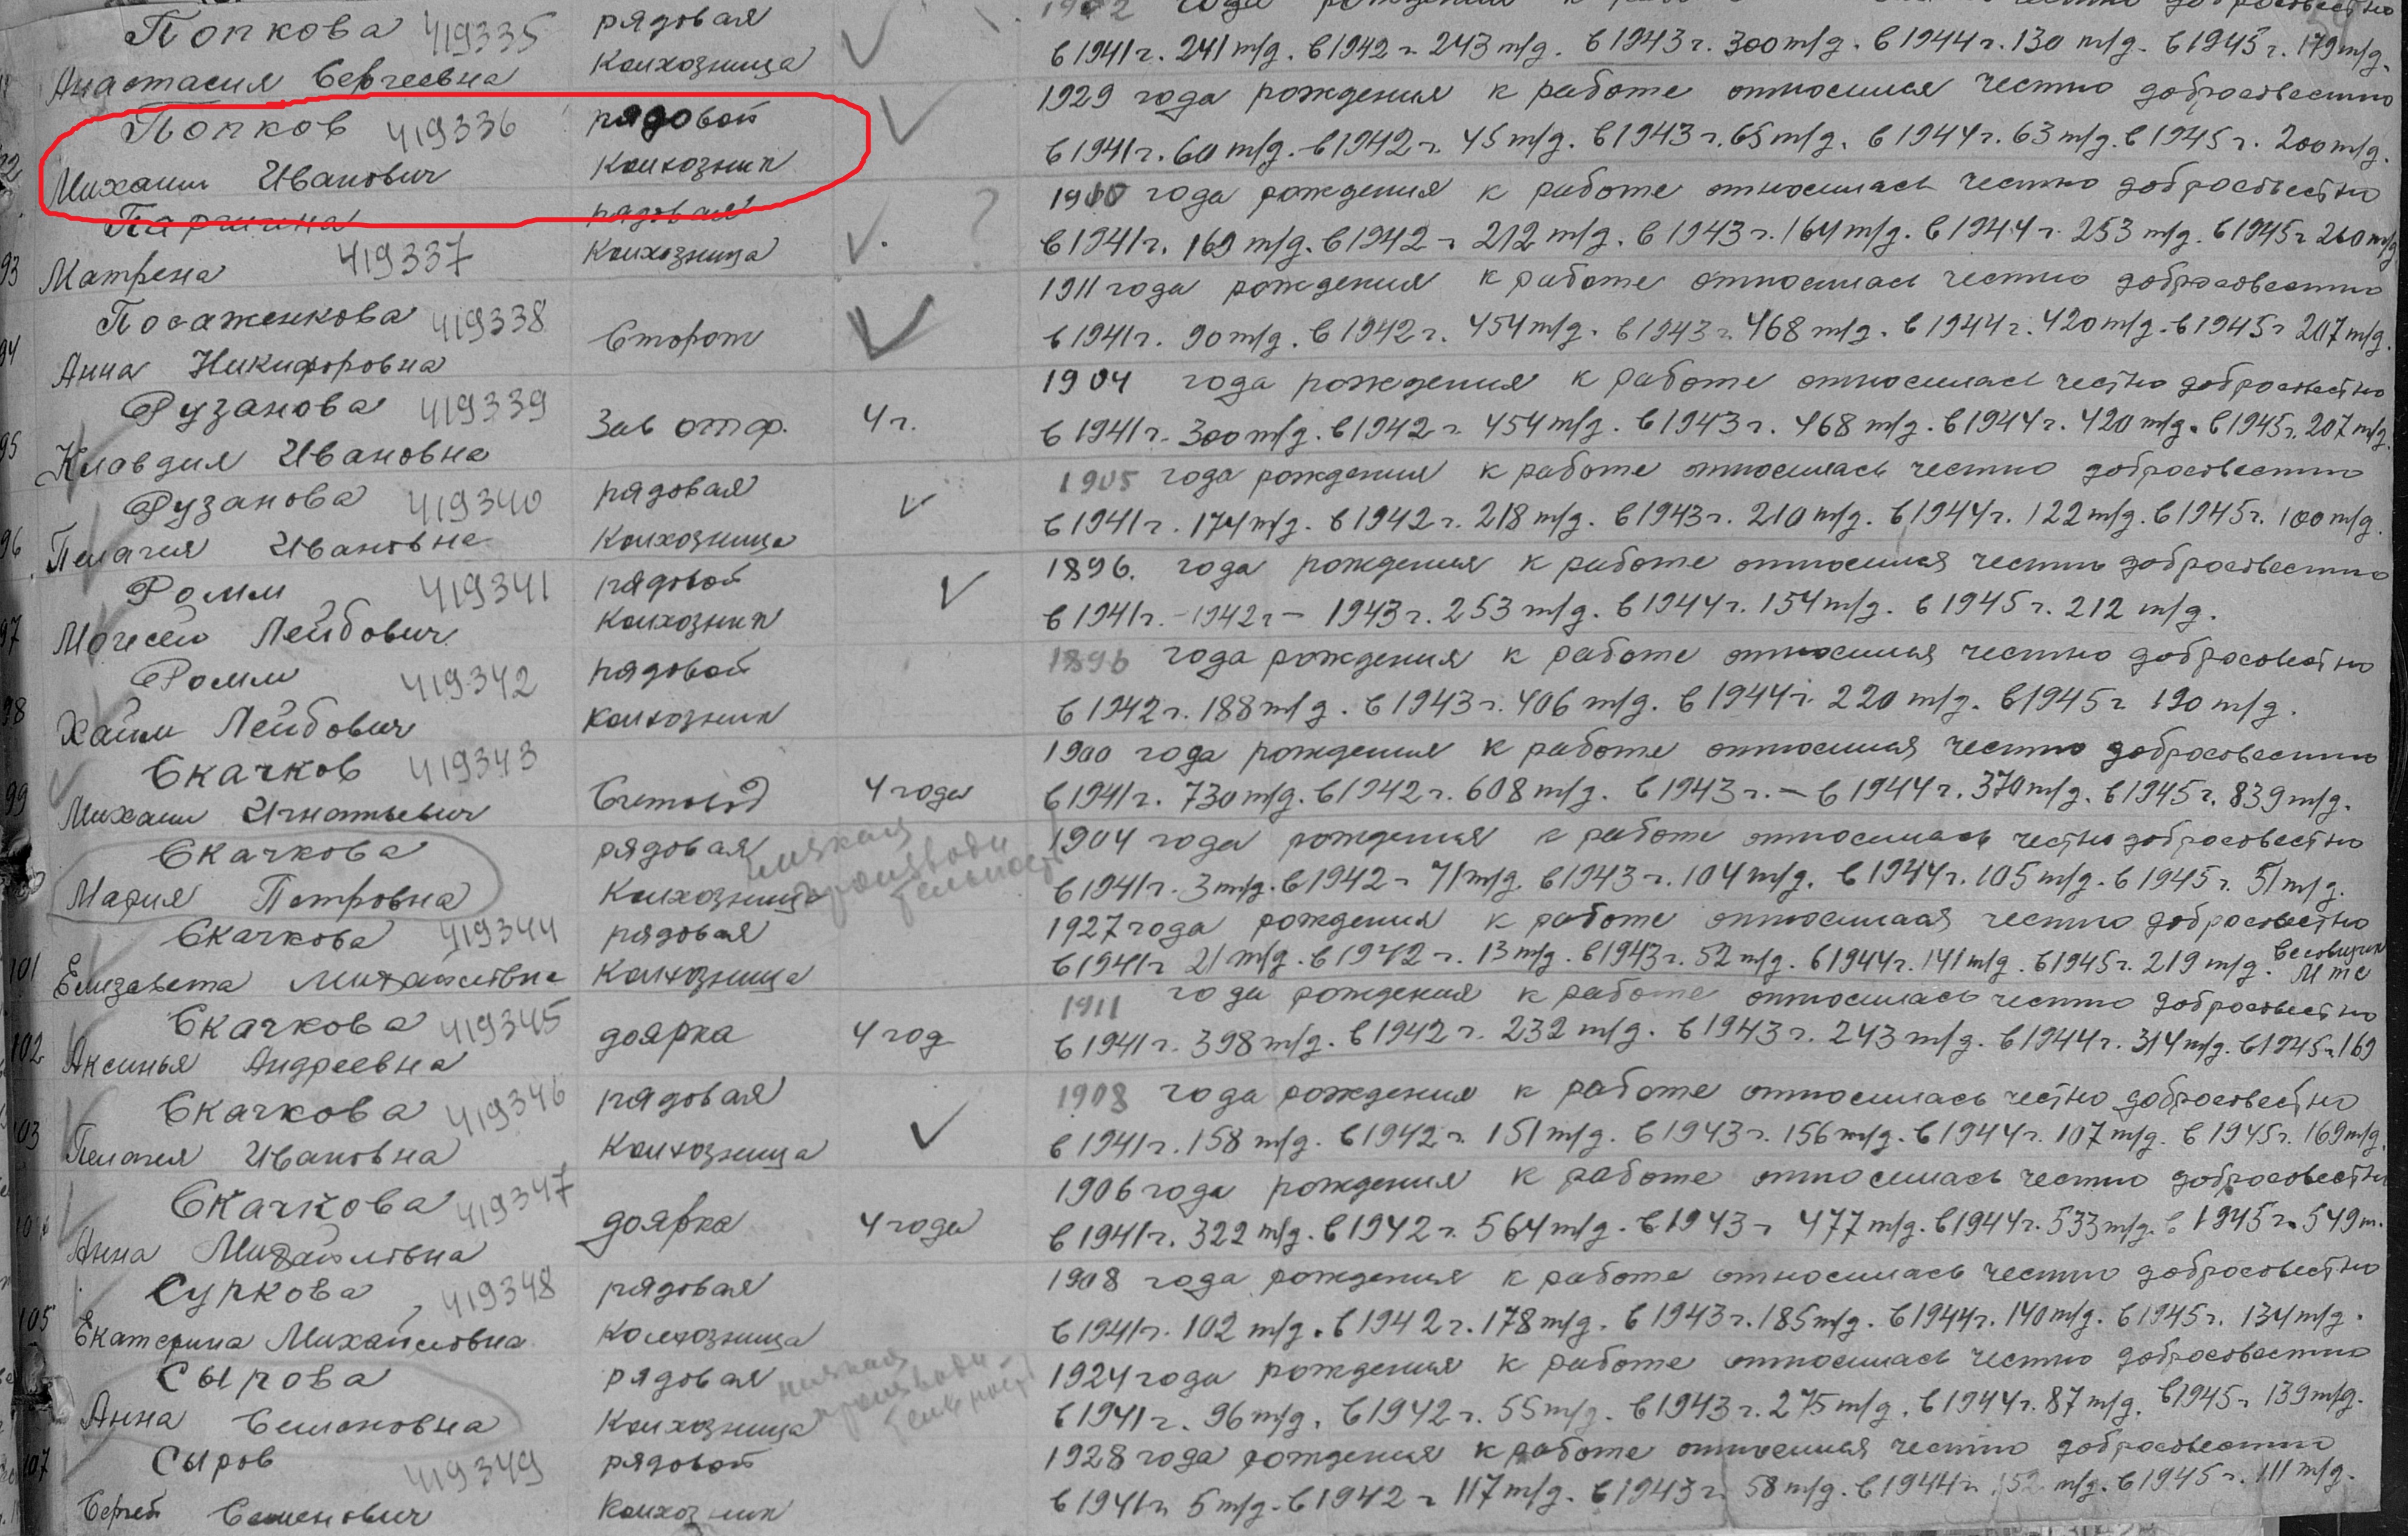 1902 года рождения к работе честно добросовестно
Попкова 419335 рядовая
Анастасия Сергеевна колхозница в 1941 г. 241 т/д. в 1942 г. 243 т/д. в 1943 г. 300 т/д. в 1944 г. 130 т/д. в 1945 г. 179 т/д.
Попков 419336 рядовой 1929 года рождения к работе относился честно добросовестно
Михаил Иванович колхозник в 1941 г. 60 т/д. в 1942 г. 45 т/д. в 1943 г. 65 т/д. в 1944 г. 63 т/д. в 1945 г. 200 т/д.
рядовая ? 1900 года рождения к работе относилась честно добросовестно
93 Матрена 419337 колхозница в 1941 г. 169 т/д. в 1942 г. 212 т/д. в 1943 г. 164 т/д. в 1944 г. 253 т/д. в 1945 г. 260 т/д
Посаженкова 419338 1911 года рождения к работе относилась честно добросовестно
94 Анна Никифоровна Сторож в 1941 г. 90 т/д. в 1942 г. 454 т/д. в 1943 г. 468 т/д. в 1944 г. 420 т/д. в 1945 г. 207 т/д.
Рузанова 419339 1904 года рождения к работе относилась честно добросовестно
95 Клавдия Ивановна Зав от.ф. 4 г. в 1941 г. 300 т/д. в 1942 г. 454 т/д. в 1943 г. 468 т/д. в 1944 г. 420 т/д. в 1945 г. 207 т/д.
Рузанова 419340 рядовая 1905 года рождения к работе относилась честно добросовестно
96 Пелагия Ивановна колхозница в 1941 г. 174 т/д. в 1942 г. 218 т/д. в 1943 г. 210 т/д. в 1944 г. 122 т/д. в 1945 г. 100 т/д.
Ромм 419341 рядовой 1896. года рождения к работе относился честно добросовестно
97 Моисей Лейбович колхозник в 1941 г. - 1942 г - 1943 г. 253 т/д. в 1944 г. 154 т/д. в 1945 г. 212 т/д.
Ромм 419342 рядовой 1896 года рождения к работе относился честно добросовестно
98 Хаим Лейбович колхозник в 1942 г. 188 т/д. в 1943 г. 406 т/д. в 1944 г. 220 т/д. в 1945 г 190 т/д.
Скачков 419343 1900 года рождения к работе относился честно добросовестно
99 Михаил Игнатьевич Счетовод 4 года в 1941 г. 730 т/д. в 1942 г. 608 т/д. в 1943 г. - в 1944 г. 370 т/д. в 1945 г. 839 т/д.
Скачкова рядовая низкая 1904 года рождения к работе относилась честно добросовестно
Мария Петровна колхозница производи тельность в 1941 г. 3 т/д. в 1942 г 71 т/д. в 1943 г. 104 т/д. в 1944 г. 105 т/д. в 1945 г. 51 т/д.
Скачкова 419344 рядовая 1927 года рождения к работе честно добросовестно
101 Елизавета Михайловна колхозница в 1941 г 21 т/д. в 1942 г. 13 т/д. в 1943 г. 52 т/д. в 1944 г. 141 т/д. в 1945 г. 219 т/д. Весовщик МТС
Скачкова 419345 1911 года рождения к работе относилась честно добросовестно
102 Аксинья Андреевна доярка 4 год в 1941 г. 398 т/д. в 1942 г. 232 т/д. в 1943 г. 243 т/д. в 1944 г. 314 т/д. в 1945 г. 169
Скачкова 419346 рядовая 1908 года рождения к работе относилась честно добросовестно
103 Пелагия Ивановна колхозница в 1941 г. 158 т/д. в 1942 г. 151 т/д. в 1943 г. 156 т/д. в 1944 г. 107 т/д. в 1945 г. 169 т/д.
Скачкова 419347 1906 года рождения к работе относилась честно добросовестно
Анна Михайловна доярка 4 года в 1941 г. 322 т/д. в 1942 г. 564 т/д. в 1943 г 477 т/д. в 1944 г. 533 т/д. в 1945 г. 549 т.
Суркова 419348 рядовая 1908 года рождения к работе относилась честно добросовестно
105 Екатерина Михайловна колхозница в 1941 г. 102 т/д. в 1942 г. 178 т/д. в 1943 г. 185 т/д. в 1944 г. 140 т/д. в 1945 г. 134 т/д.
Сырова рядовая низкая 1924 года рождения к работе относилась честно добросовестно
Анна Семеновна колхозница производи- тельность в 1941 г. 96 т/д. в 1942 г. 55 т/д. в 1943 г. 275 т/д. в 1944 г. 87 т/д. в 1945 г. 139 т/д.
Сыров 419349 рядовой 1928 года рождения к работе относился честно добросовестно
107 Сергей Семенович колхозник в 1941 г. 5 т/д. в 1942 г 117 т/д. в 1943 г. 58 т/д. в 1944 г. 152 т/д. в 1945 г. 111 т/д.